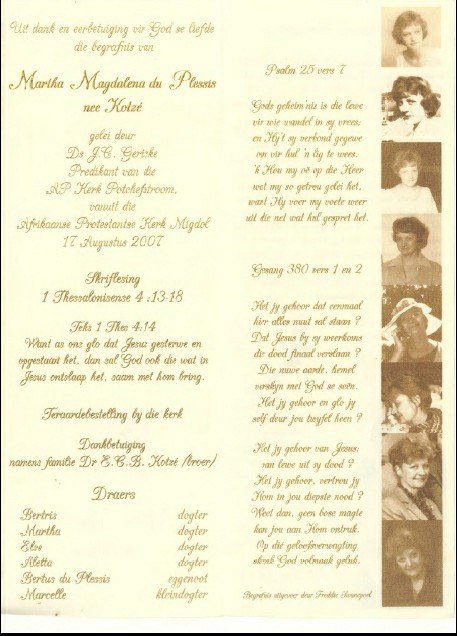 Uit dank en eerbetuiging vir God se liefde
die begrafnis van
Martha Magdalena du Plessis
nee Kotzé
gelei deur
Ds J.C. Gericke
Predikant van die
AP Kerk Potchefstroom,
vanuit die
Afrikaanse Protestantse Kerk Migdol
17 Augustus 2007
Skriflesing
1 Thessalonisense 4 :13-18
Teks 1 Thes 4:14
Want as ons glo dat Jesus gesterwe en
opgestaan het, dan sal God ook die wat in
Jesus ontslaap het, saam met hom bring.
Teraardebestelling by die kerk
Dankbetuiging
namens familie Dr E.C.B. Kotzé (broer)
Draers
Bertris dogter
Martha dogter
Elve dogter
Aletta dogter
Bertus du Plessis eggenoot
Marcelle kleindogter
Psalm 25 vers 7
Gods geheim'nis is die lewe
vir wie wandel in sy vrees;
en Hy't sy verbond gegewe
om vir hul 'n lig te wees.
'k Hou my oë op die Heer
wat my so getrou gelei het,
want Hy voer my voete weer
uit die net wat hul gesprei het.
Gesang 380 vers 1 en 2
Het jy gehoor dat eenmaal
hier alles nuut sal staan ?
Dat Jesus by sy weerkoms
die dood finaal verslaan ?
Die nuwe aarde, hemel
verskyn met God se seën.
Het jy gehoor en glo jy
self deur jou twyfel heen ?
Het jy gehoor van Jesus;
van lewe uit sy dood ?
Het jy gehoor, vertrou jy
Hom in jou diepste nood ?
Weet dan, geen bose magte
kan jou aan Hom ontruk.
Op die geloofsverwagting
skenk God volmaak geluk.
Begrafnis uitgevoer deur Freddie Swanepoel